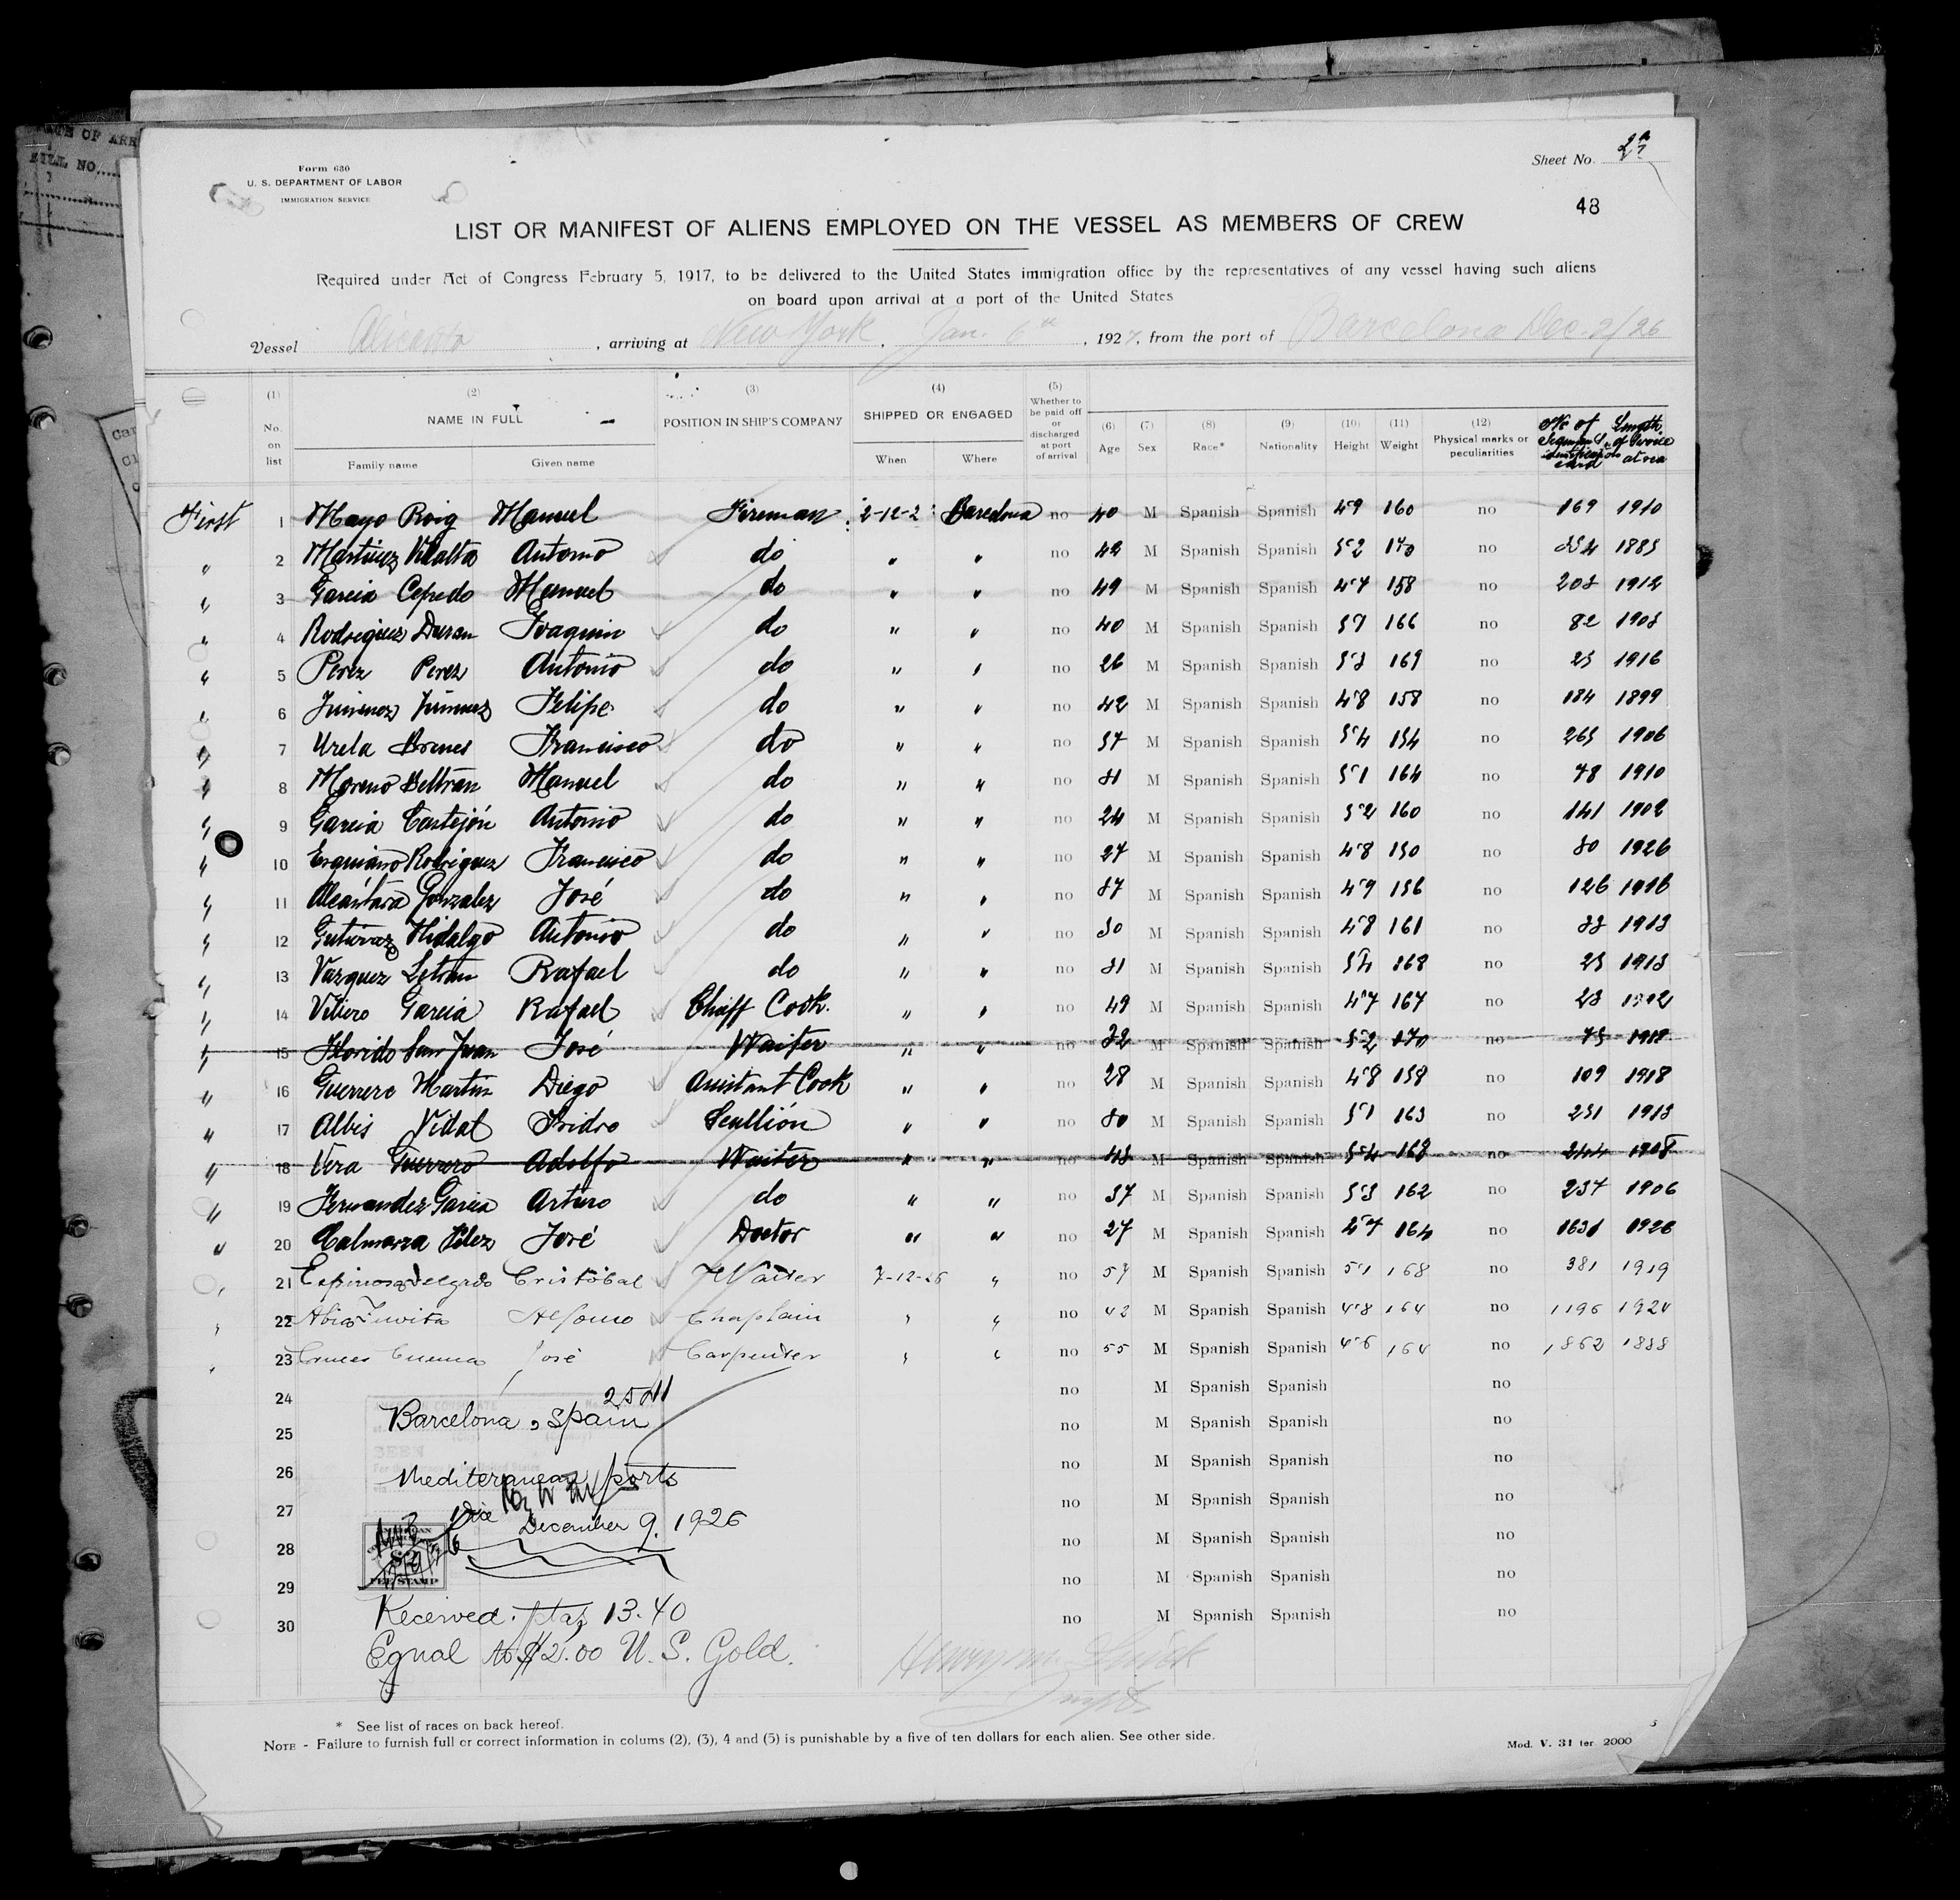 Form 680
U. S. DEPARTMENT OF LABOR
IMMIGRATION SERVICE
Sheet No.
48
LIST OR MANIFEST OF ALIENS EMPLOYED ON THE VESSEL AS MEMBERS OF CREW
Required under Act of Congress February 5, 1917, to be delivered to the United States immigration office by the representatives of any vessel having such aliens
on board upon arrival at a port of the United States
Vessel Alicante, arriving at New York, Jan. 6th, 1927, from the port of Barcelona Dec. 2/26
(1) No. on list (2) NAME IN FULL Family name Given name (3) POSITION IN SHIP'S COMPANY (4) SHIPPED OR ENGAGED When Where (5) Whether to be paid off or discharged at port of arrival (6) Age (7) Sex (8) Race* (9) Nationality (10) Height (11) Weight (12) Physical marks or peculiarities No of Seaman's identification card Length of Service at sea
First 1 Mayo Roig Manuel Fireman 2-12-2 Barcelona no 40 M Spanish Spanish 4'9 160 no 169 1910
" 2 Martinez Vilalta Antonio do " " no 42 M Spanish Spanish 5'2 170 no 1885
" 3 Garcia Cepedo Manuel do " " no 49 M Spanish Spanish 4'7 158 no 208 1912
" 4 Rodriguez Duran Joaquin do " " no 40 M Spanish Spanish 5'1 166 no 82 1903
" 5 Perez Perez Antonio do " " no 26 M Spanish Spanish 5'3 169 no 25 1916
" 6 Jimenez Jimenez Felipe do " " no 42 M Spanish Spanish 4'8 158 no 184 1899
" 7 Urela Francisco do " " no 37 M Spanish Spanish 5'4 154 no 265 1906
" 8 Moreno Beltrán Manuel do " " no 31 M Spanish Spanish 5'1 164 no 78 1910
" 9 Garcia Castejón Antonio do " " no 24 M Spanish Spanish 5'2 160 no 141 1902
" 10 Esquiano Rodriguez Francisco do " " no 27 M Spanish Spanish 4'8 150 no 80 1926
" 11 Alcántara Gonzalez José do " " no 37 M Spanish Spanish 4'9 156 no 126 1916
" 12 Gutierrez Hidalgo Antonio do " " no 30 M Spanish Spanish 4'8 161 no 33 1913
" 13 Vazquez Letran Rafael do " " no 31 M Spanish Spanish 5'4 168 no 25 1913
" 14 Viliero Garcia Rafael Chieff Cook. " " no 49 M Spanish Spanish 4'7 167 no 23 1902
" 15 Florido San Juan José Waiter " " no 32 M Spanish Spanish 5'2 170 no 75
" 16 Guerrero Martin Diego Assistant Cook " " no 28 M Spanish Spanish 4'8 158 no 109 1918
" 17 Albis Vidal Isidro Scullión " " no 30 M Spanish Spanish 5'1 163 no 231 1913
" 18 Vera Guerrero Adolfo Waiter " " no 43 M Spanish Spanish 5'4 168 no 244 1908
" 19 Fernandez Garcia Arturo do " " no 37 M Spanish Spanish 5'3 162 no 237 1906
" 20 Calmarza Velez José Doctor " " no 27 M Spanish Spanish 4'7 164 no 1631 1926
" 21 Espinosa Delgado Cristóbal Waiter 7-12-26 " no 57 M Spanish Spanish 5'1 168 no 381 1919
" 22 Alfonso Chaplain " " no 42 M Spanish Spanish 4'8 164 no 1196 1924
" 23 José Carpenter " " no 55 M Spanish Spanish 4'6 164 no 1862 1888
24 no M Spanish Spanish no
2541
Barcelona, Spain
25 no M Spanish Spanish no
26 no M Spanish Spanish no
Mediterranean ports
27 no M Spanish Spanish no
Vice
December 9, 1926
28 no M Spanish Spanish no
FEE STAMP
29 no M Spanish Spanish no
30 no M Spanish Spanish no
Received ptas 13.40
Equal to $2.00 U. S. Gold.
* See list of races on back hereof.
NOTE - Failure to furnish full or correct information in colums (2), (3), 4 and (5) is punishable by a five of ten dollars for each alien. See other side.
Mod. V. 31 ter 2000